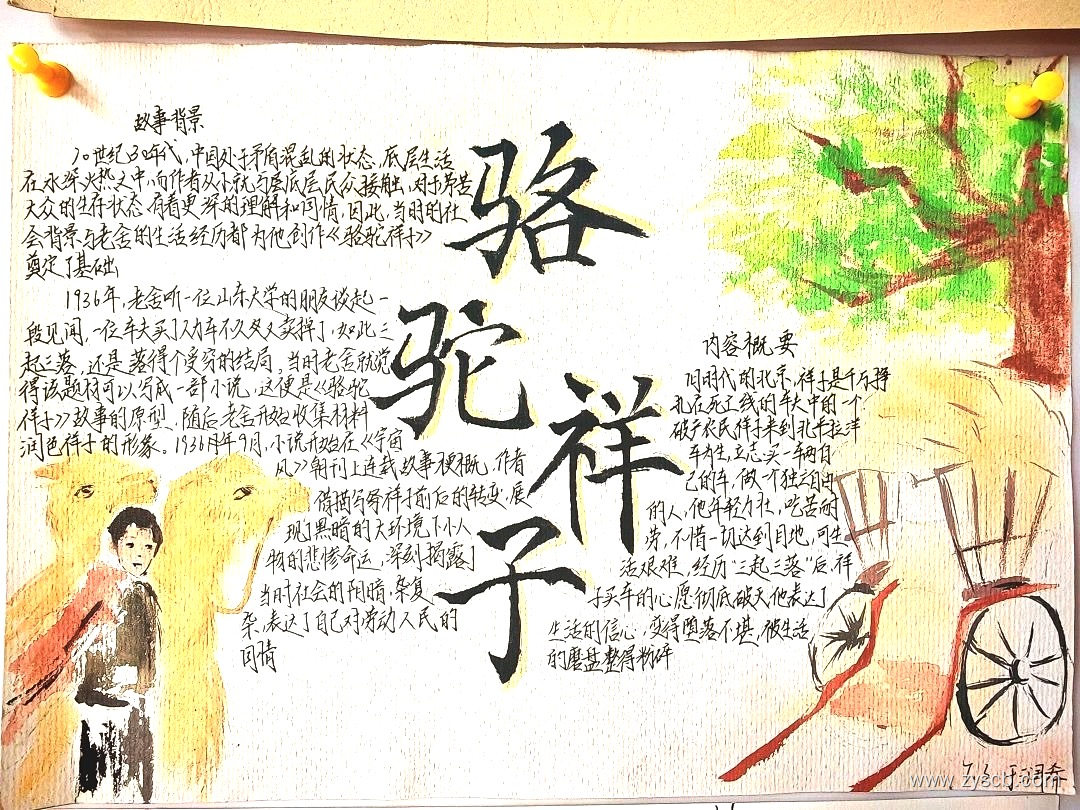 骆驼祥子
故事背景
20世纪30年代,中国处于矛盾混乱的状态,底层生活
在水深火热之中,而作者从小就与底层民众接触,对于劳苦
大众的生存状态有着更深的理解和同情,因此,当时的社
会背景与老舍的生活经历都为他创作《骆驼祥子》
奠定了基础
1936年,老舍听一位山东大学的朋友谈起一
段见闻,一位车夫买了人力车不久又卖掉了,如此三
起三落,还是落得个受穷的结局。当时老舍就觉
得该题材可以写成一部小说,这便是《骆驼
祥子》故事的原型。随后老舍开始收集材料
润色祥子的形象。1936年9月,小说开始在《宇宙
风》期刊上连载,故事梗概,作者
借描写祥子前后的转变,展
现了黑暗的大环境下小人
物的悲惨命运,深刻揭露了
当时社会的阴暗,杂复
杂,表达了自己对劳动人民的
同情
内容概要
旧时代的北京,祥子是千万挣
扎在死亡线的车夫中的一个
破产农民祥子来到北平拉洋
车为生,立志买一车两自
己的车,做一个独立自由
的人,他年轻力壮,吃苦耐
劳,不惜一切达到目地,可生
活艰难,经历"三起三落"后,祥
子买车的心愿彻底破灭他表达了
生活的信心,变得堕落不堪,被生活
的磨盘整得粉碎
www.zyscb.com